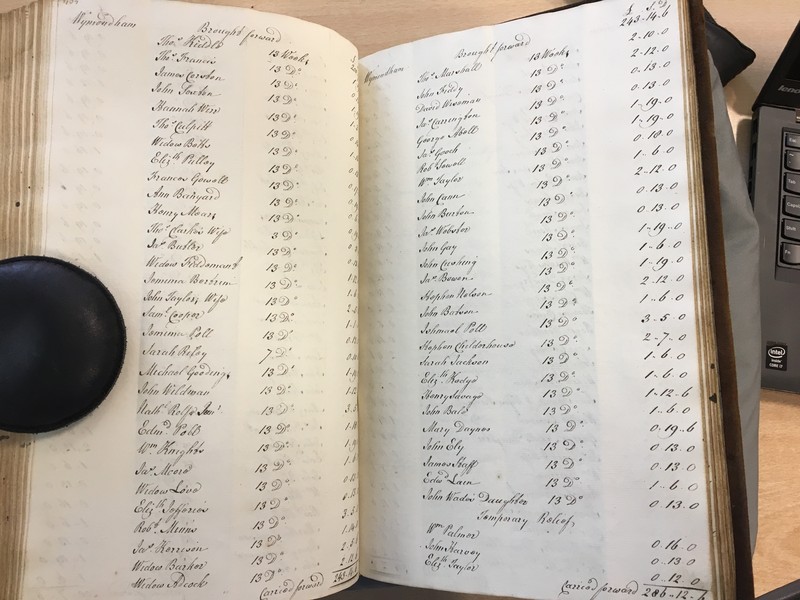 Wymondham
Brought forward
Thos. Kiddle 13 Weeks
Thos. Francis 13 Do
James Corston 13 Do
John Sexton 13 Do
Hannah Wier 13 Do
Thos. Culpitt 13 Do
Widow Boths 13 Do
Elizth. Pulley 13 Do
Frances Gowell 13 Do
Ann Banyard 13 Do
Henry Moar 13 Do
Thos. Clarkes Wife 3 Do
Jas. Butler 13 Do
Widow 13 Do
Jemima 13 Do
John Taylors Wife 13 Do
Saml. Cooper 13 Do
Jemima Poll 13 Do
Sarah Refoy 7 Do
Michael Gooding 13 Do
John Wildman 13 Do
Nathl. Rolfe Senr. 13 Do
Edmd. Poll 13 Do
Wm. Knights 13 Do
Jas. Moore 13 Do
Widow Love 13 Do
Elizth. Jefferies 13 Do
Robt. Minns 13 Do
Jas. Kerrison 13 Do
Widow Barker 13 Do
Widow Adcock 13 Do
Carried forward
£ s d
Wymondham Brought forward 243-14-6
Thos. Marshall 13 Weeks 2-10-0
John Fiddy 13 Do 2-12-0
David Wiseman 13 Do 0-13-0
Jas. Carrington 13 Do 0-13-0
George Moll 13 Do 1-19-0
Jas. Gooch 13 Do 1-19-0
Robt. Sewell 13 Do 0-10-0
Wm. Taylor 13 Do 1-6-0
John Cann 13 Do 2-12-0
John Burton 13 Do 0-13-0
Jas. Webster 13 Do 0-13-0
John Gay 13 Do 1-19-0
John Cushing 13 Do 1-6-0
Jas. Bowen 13 Do 1-19-0
Stephen Nelson 13 Do 2-12-0
John Batson 13 Do 1-6-0
Ishmael Poll 13 Do 3-5-0
Stephen Childerhouse 13 Do 2-7-0
Sarah Jackson 13 Do 1-6-0
Elizth. Kedge 13 Do 1-6-0
Henry Savage 13 Do 1-12-6
John Bale 13 Do 1-6-0
Mary Daynes 13 Do 0-19-6
John Ely 13 Do 0-13-0
James Staff 13 Do 0-13-0
Edwd. Lain 13 Do 1-6-0
John Wades Daughter 13 Do 0-13-0
Temporary Relief
Wm. Palmer 0-16-0
John Harvey 0-13-0
Elizth. Taylor 0-12-0
Carried forward 286-12-6
Lenovo
intel
inside
CORE i7